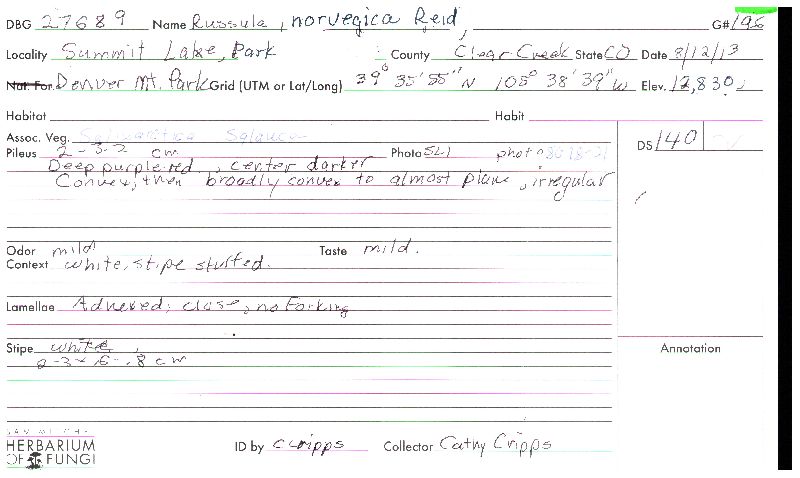 DBG 27689 Name Russula, norvegica Reid, G# 196
Locality Summit Lake, Park County Clear Creek State CO Date 8/12/13
Nat. For. Denver Mt. Park Grid (UTM or Lat/Long) 39° 35' 55" N 105° 38' 39" W Elev. 12,830
Habitat Habit
Assoc. Veg. DS 140
Pileus 2-3.2 cm Photo SLI photo
Deep purple-red, center darker
Convex, then broadly convex to almost plane, irregular
Odor mild Taste mild.
Context white, stipe stuffed.
Lamellae Adnexed, close, no forking
Stipe white,
2-3 x .6-.8 cm
Annotation
HERBARIUM
OF FUNGI
ID by C Cripps Collector Cathy Cripps